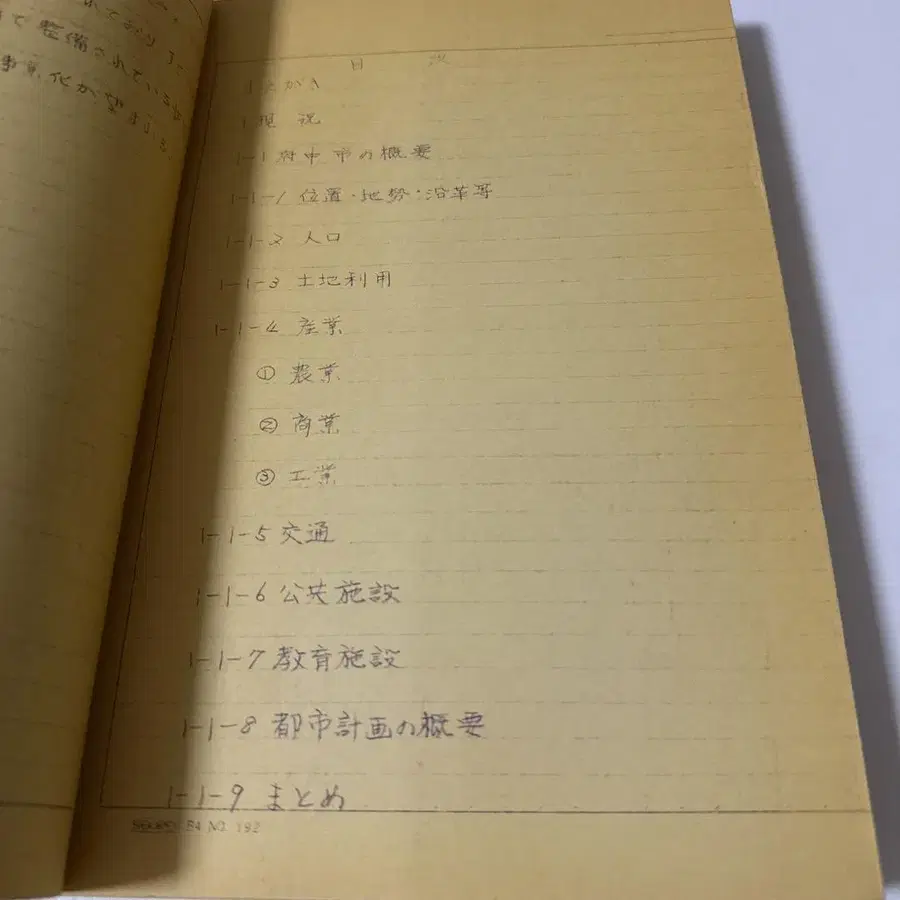 れており
て整備されている
事業化が望まれる。
目 次
はがき
1 現況
1-1 府中市の概要
1-1-1 位置・地勢・沿革等
1-1-2 人口
1-1-3 土地利用
1-1-4 産業
① 農業
② 商業
③ 工業
1-1-5 交通
1-1-6 公共施設
1-1-7 教育施設
1-1-8 都市計画の概要
1-1-9 まとめ
B4 NO. 192